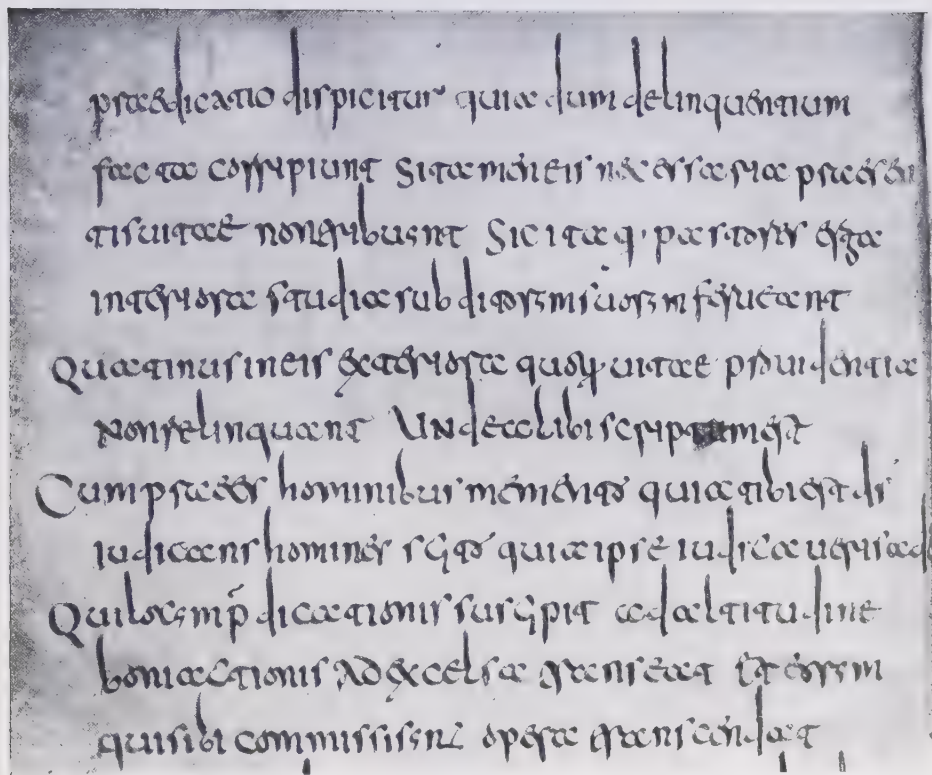 praedicatio dispicitur quia dum delinquentium
facta corripiunt Si tamen eis necessaria praesen
tis uitae non tribuent Sic itaq· pastores erga
interiora studia subditorum suorum ferueant
Quatinus in eis exteriora quoq· uitae prouidentia
non relinquant Unde alibi scriptum est
Cum praees hominibus memento quia tibi est ds̄
iudicans homines scito quia ipse iudicaueris ad
Qui locum p̄dicationis suscipit ad altitudine
boni actionis ad excelsa transeat et eorum
qui sibi commissi sunt opera transcendat